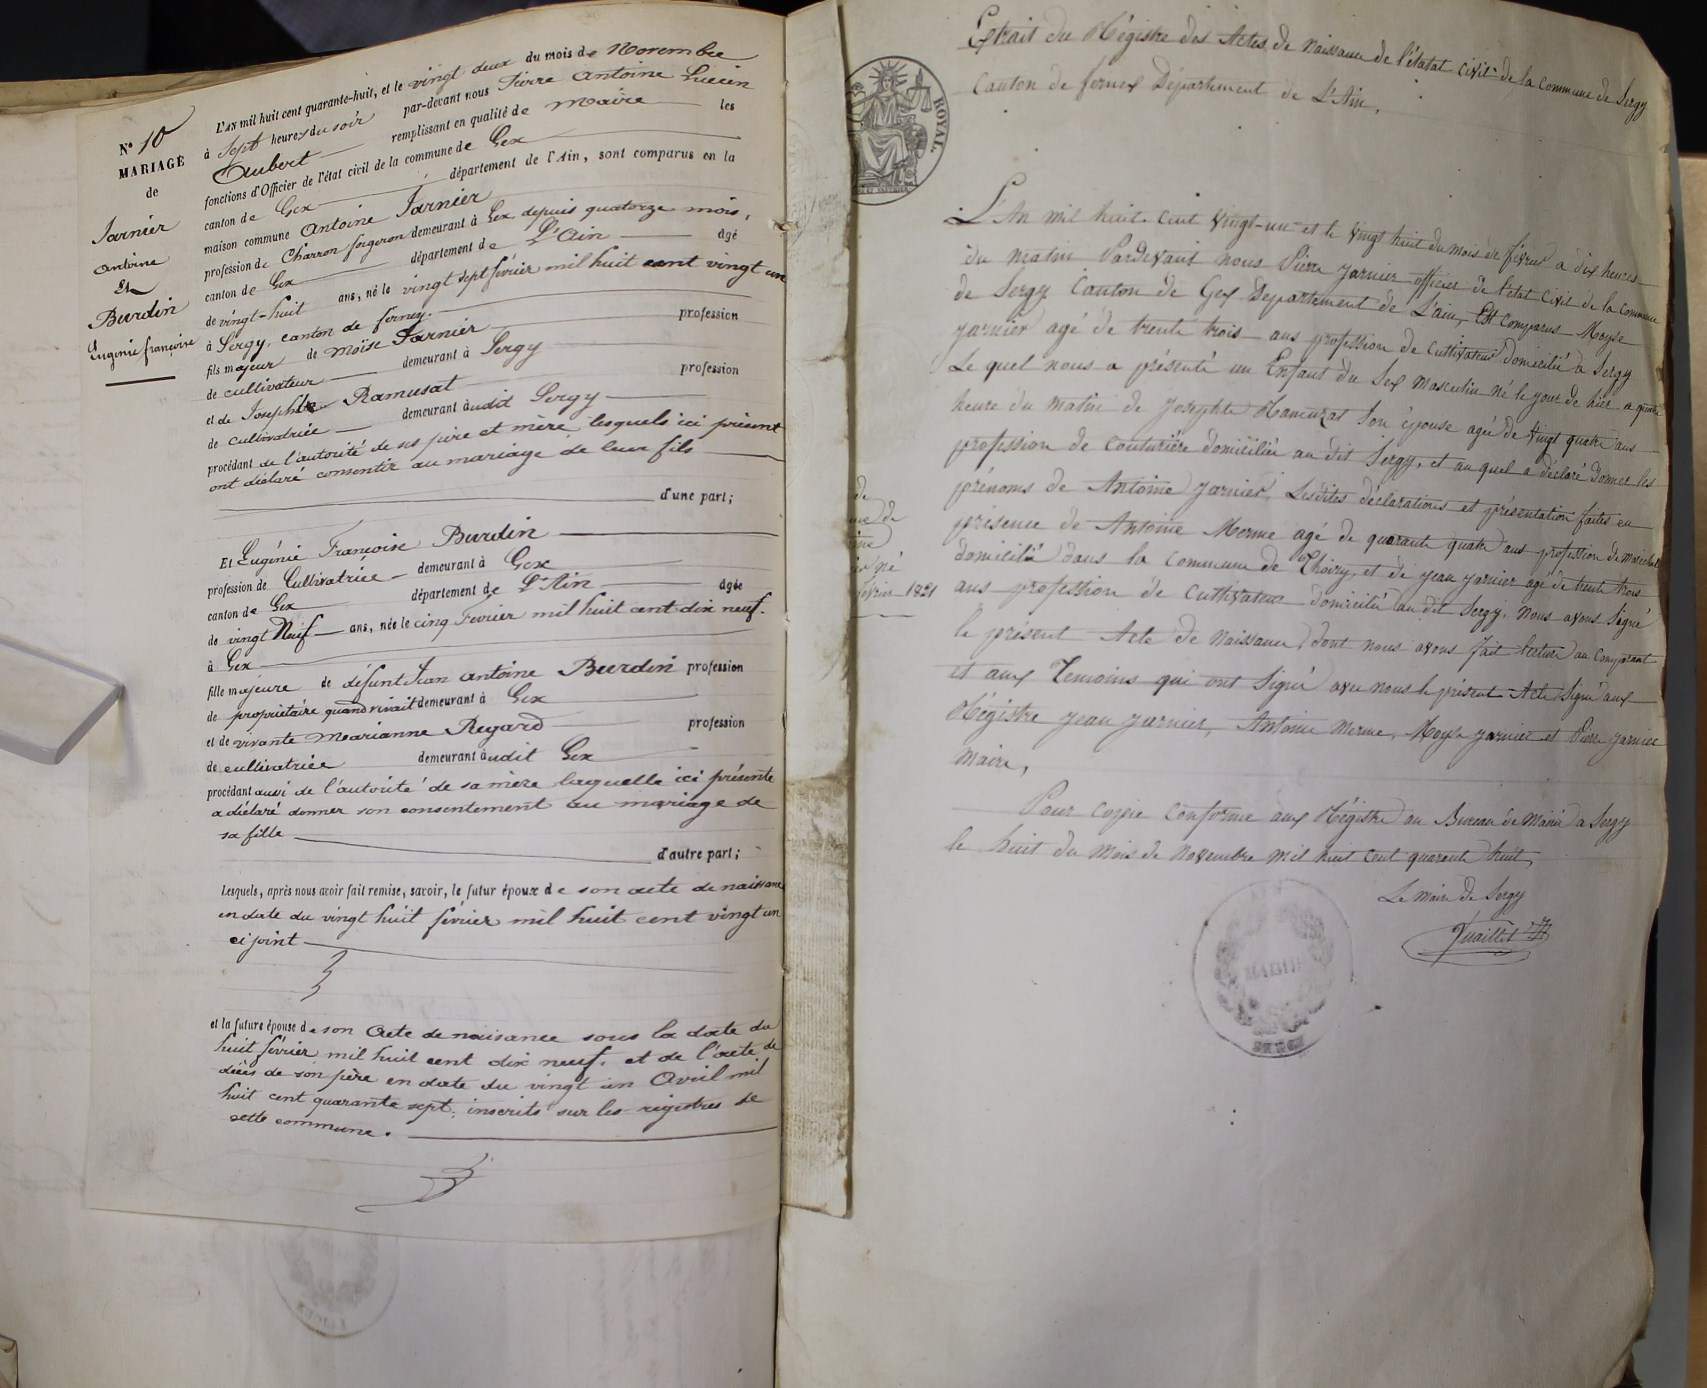 N° 10
MARIAGE
de
Jarnier
Antoine
Et
Burdin
Eugénie françoise
L'AN mil huit cent quarante-huit, et le vingt deux du mois de Novembre
à Sept heures du soir par-devant nous Pierre Antoine Lucien
Aubert remplissant en qualité de Maire les
fonctions d'Officier de l'état civil de la commune de Gex
canton de Gex département de l'Ain, sont comparus en la
maison commune Antoine Jarnier
profession de Charron forgeron demeurant à Gex depuis quatorze mois,
canton de Gex département de L'Ain âgé
de vingt-huit ans, né le vingt sept février mil huit cent vingt un
à Sergy, canton de ferney.
fils majeur de Moïse Jarnier profession
de cultivateur demeurant à Sergy
et de Josephte Ramusat profession
de cultivatrice demeurant àudit Sergy
procédant de l'autorité de ses père et mère lesquels ici présent
ont déclaré consentir au mariage de leur fils
d'une part;
Et Eugénie Françoise Burdin
profession de Cultivatrice demeurant à Gex
canton de Gex département de L'Ain âgée
de vingt Neuf ans, née le cinq Fevrier mil huit cent dix neuf.
à Gex
fille majeure de défunt Jean antoine Burdin profession
de propriétaire quand vivait demeurant à Gex
et de vivante Marianne Regard profession
de cultivatrice demeurant àudit Gex
procédant aussi de l'autorité de sa mère laquelle ici présente
a déclaré donner son consentement au mariage de
sa fille
d'autre part;
Lesquels, après nous avoir fait remise, savoir, le futur époux de son acte de naissance
en date du vingt huit février mil huit cent vingt un
ci joint
et la future épouse de son Acte de naissance sous la date du
huit février mil huit cent dix neuf. et de l'acte de
décès de son père en date du vingt un Avril mil
huit cent quarante sept. inscrits sur les registres de
cette commune.
Extrait du Régistre des Actes de Naissance de l'étatat civil de la commune de Sergy
Canton de fernex Département de L'Ain,
ROYAL.
L'An mil huit cent vingt-un et le vingt huit du mois de février a dix heures
du matin Pardevant nous Pierre Jarnier officier de l'état Civil de la commune
de Sergy Canton de Gex Departement de L'ain, Est comparus Moyse
jarnier agé de trente trois ans profession de cultivateur domicilié a Sergy
Le quel nous a présenté un Enfant du Sex masculin né le jour de hier a quatre
heure du matin de Josephte Ramuzat Son épouse agée de vingt quatre ans
profession de couturière domiciliée au dit Sergy, et au quel a déclaré donner les
prénoms de Antoine Jarnier, Lesdites déclarations et présentation faites en
présence de Antoine Merme agé de quarante quatre ans profession de maréchal
domicilié dans la commune de Thoiry, et de jean jarnier agé de trente trois
ans profession de Cultivateur domicilié au dit Sergy. Nous avons Signé
le présent Acte de Naissance, dont nous avons fait lecture au Comparant
et aux Temoins qui ont Signé avec nous le présent Acte Signé aux
Régistre jean jarnier, Antoine Merme, Moyse jarnier et Pierre jarnier
Maire,
Pour copie Conforme aux Régistre au Bureau de Mairie a Sergy
le huit du Mois de Novembre mil huit cent quarante huit,
Le Maire de Sergy
MAIRIE
de
né
février 1821